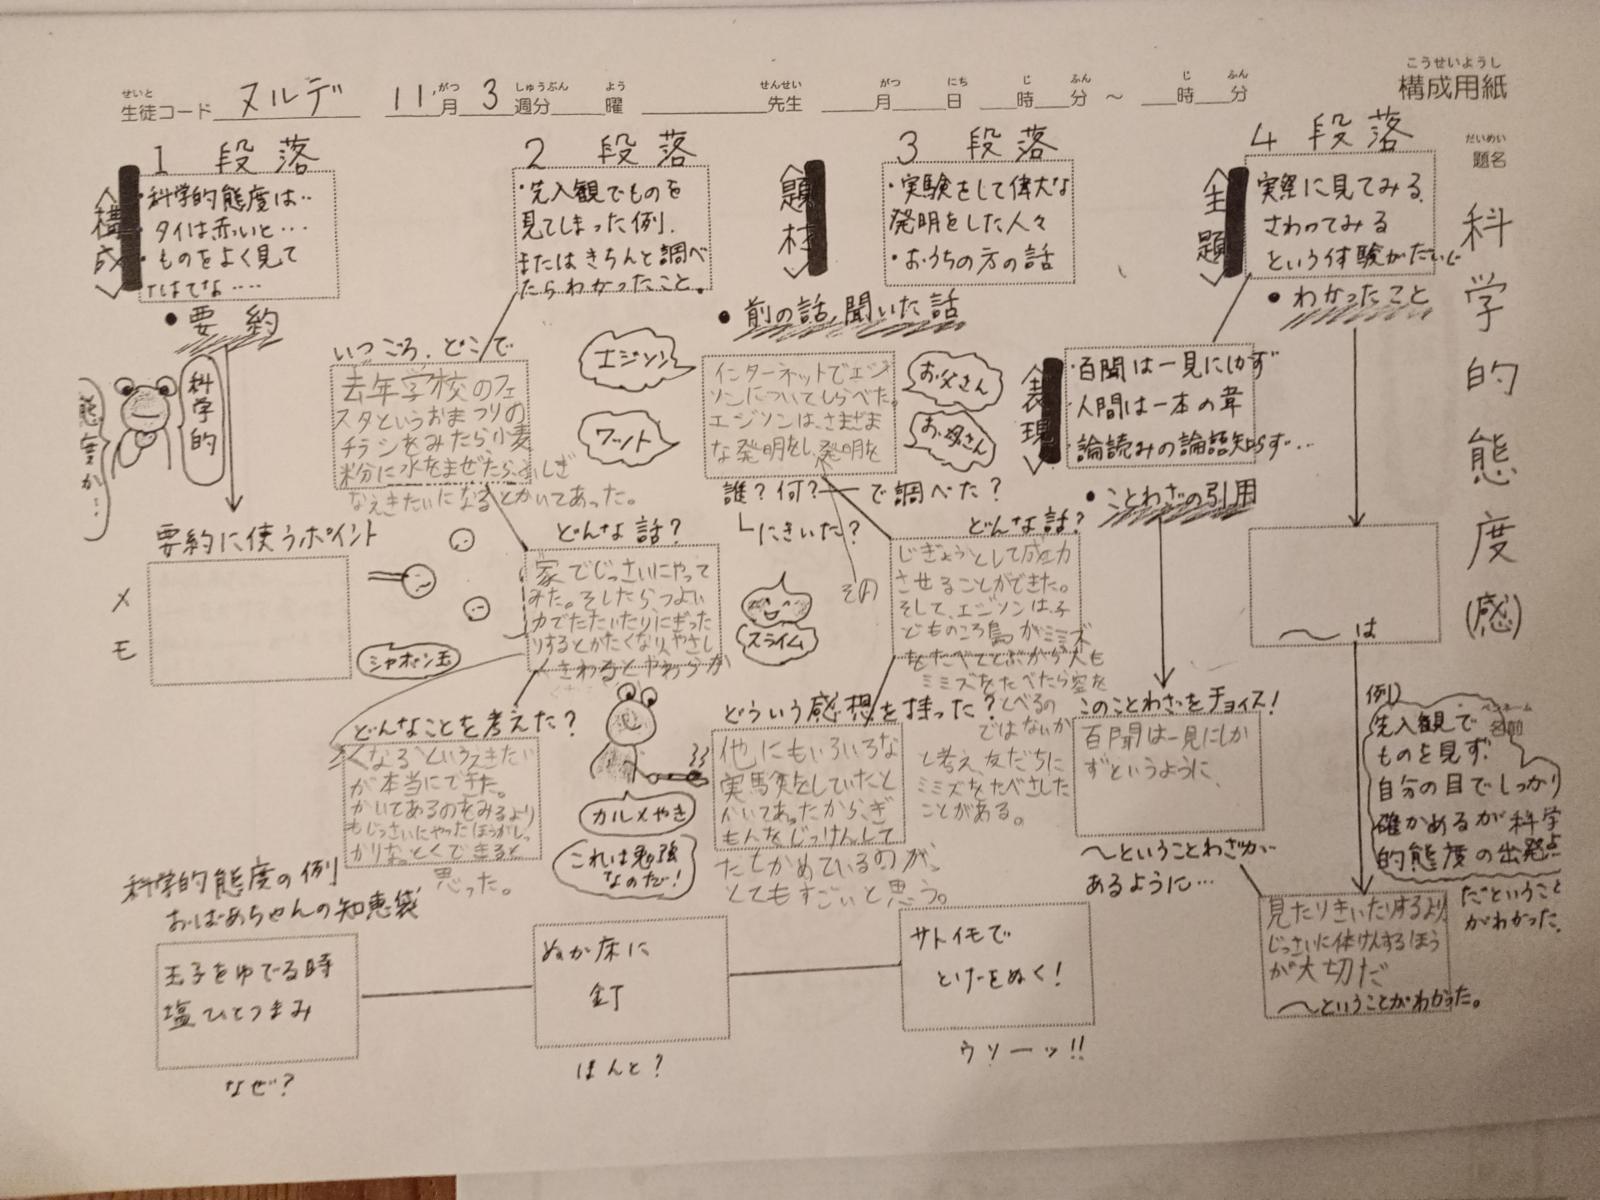 こうせいようし
構成用紙
せいと
生徒コード ヌルデ 11月 3週分 曜 先生 月 日 時 分 〜 時 分
がつ しゅうぶん よう せんせい がつ にち じ ふん じ ふん
だいめい
題名
科学的態度(感)
ペンネーム
名前
1 段落
<構成>
・科学的態度は‥
タイは赤いと‥‥
・ものをよく見て
いはてな‥‥
・要約
科学的
態度か…
要約に使うポイント
メモ
2 段落
・先入観でものを
見てしまった例.
またはきちんと調べ
たらわかったこと。
いつごろ.どこで
去年学校のフェ
スタというおまつりの
チラシをみたら小麦
粉に水をまぜたらふしぎ
なえきたいになるとかいてあった。
どんな話?
家でじっさいにやって
みた。そしたら、つよい
力でたたいたりにぎった
りするとかたくなり、やさし
くさわるとやわらか
シャボン玉
どんなことを考えた?
くなるというえきたい
が本当にできた。
かいてあるのをみるより
もじっさいにやったほうがしっ
かりなっとくできると
思った。
カルメやき
これは勉強
なのだ!
<題材>
3 段落
・実験をして偉大な
発明をした人々
・おうちの方の話
・前の話、聞いた話
エジソン
ワット
お父さん
お母さん
インターネットでエジ
ソンについてしらべた。
エジソンは、さまざま
な発明をし、発明を
誰?何?ーで調べた?
にきいた?
その
スライム
どんな話?
じぎょうとして成功
させることができた。
そして、エジソンは、子
どものころ鳥がミミズ
をたべてとぶから人も
ミミズをたべたら空を
とべるの
ではないか
と考え、友だちに
ミミズをたべさした
ことがある。
どういう感想を持った?
他にもいろいろな
実験をしていたと
かいてあったから、ぎ
もんをじっけんして
たしかめているのが、
とてもすごいと思う。
<主題>
4 段落
実際に見てみる.
さわってみる
という体験がだいじ
・わかったこと
<表現>
・百聞は一見にしかず
・人間は一本の葦
・論語読みの論語知らず…
・ことわざの引用
〜は
このことわざをチョイス!
百聞は一見にしか
ずというように、
〜ということわざが‥
あるように…
例)
先入観で
ものを見ず.
自分の目でしっかり
確かめるが科学
的態度の出発点
だということ
がわかった.
見たりきいたりするより
じっさいに体けんするほう
が大切だ
〜ということがわかった。
科学的態度の例
おばあちゃんの知恵袋
玉子をゆでる時
塩ひとつまみ
なぜ?
ぬか床に
釘
ほんと?
サトイモで
とげをぬく!
ウソーッ!!